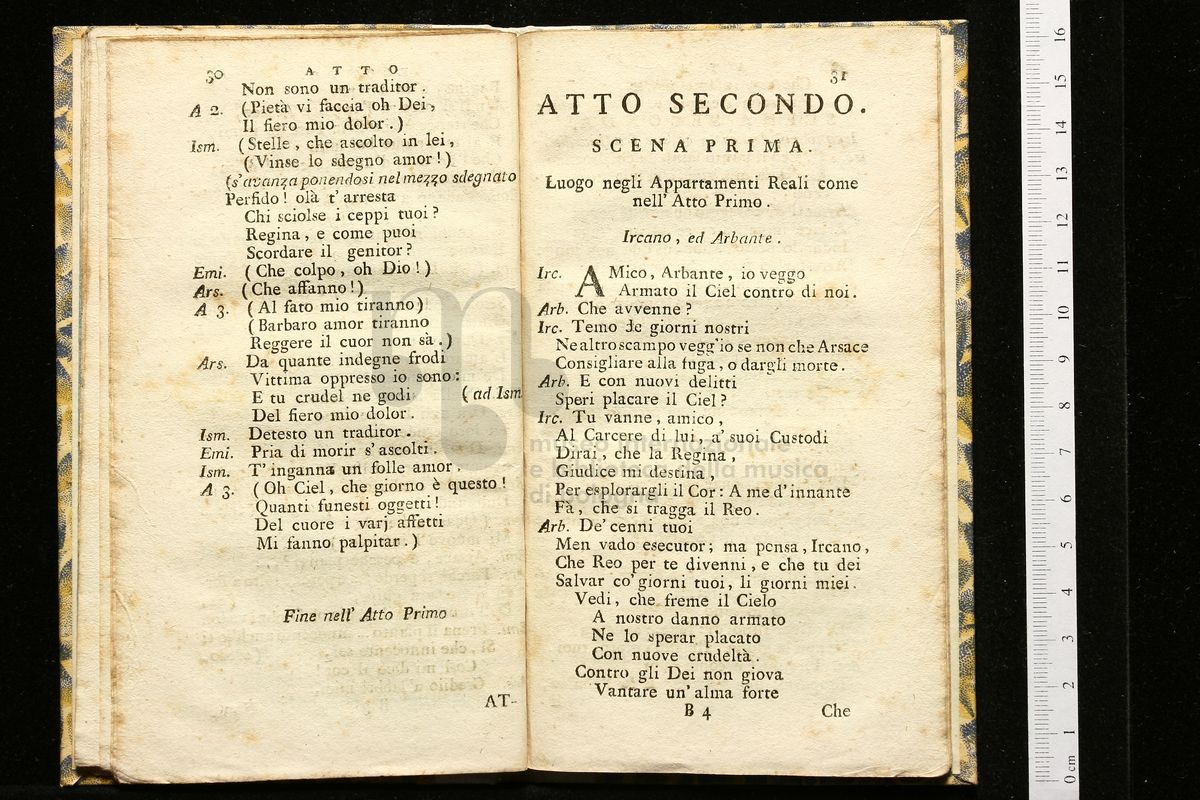 30 ATTO
Non sono un traditor.
A 2. (Pietà vi faccia oh Dei,
Il fiero mio dolor.)
Ism. (Stelle, che ascolto in lei,
(Vinse lo sdegno amor!)
(s'avanza ponendosi nel mezzo sdegnato
Perfido! olà t'arresta
Chi sciolse i ceppi tuoi?
Regina, e come puoi
Scordare il genitor?
Emi. (Che colpo, oh Dio!)
Ars. (Che affanno!)
A 3. (Al fato mio tiranno)
(Barbaro amor tiranno
Reggere il cuor non sà.)
Ars. Da quante indegne frodi
Vittima oppresso io sono:
E tu crudel ne godi (ad Ism
Del fiero mio dolor.
Ism. Detesto un traditor.
Emi. Pria di morir s'ascolti.
Ism. T'inganna un folle amor.
A 3. (Oh Ciel, che giorno è questo!
Quanti funesti oggetti!
Del cuore i varj affetti
Mi fanno palpitar.)
Fine nell' Atto Primo
AT-
31
ATTO SECONDO.
SCENA PRIMA.
Luogo negli Appartamenti Reali come
nell' Atto Primo.
Ircano, ed Arbante.
Irc. AMico, Arbante, io veggo
Armato il Ciel contro di noi.
Arb. Che avvenne?
Irc. Temo de giorni nostri
Ne altro scampo vegg'io se non che Arsace
Consigliare alla fuga, o dargli morte.
Arb. E con nuovi delitti
Speri placare il Ciel?
Irc. Tu vanne, amico,
Al Carcere di lui, a' suoi Custodi
Dirai, che la Regina,
Giudice mi destina,
Per esplorargli il Cor: A me d'innante
Fà, che si tragga il Reo.
Arb. De' cenni tuoi
Men vado esecutor; ma pensa, Ircano,
Che Reo per te divenni, e che tu dei
Salvar co' giorni tuoi, li giorni miei.
Vedi, che freme il Cielo
A nostro danno armato
Ne lo sperar placato
Con nuove crudeltà.
Contro gli Dei non giova
Vantare un' alma forte
B 4 Che
museo internazionale
e biblioteca della musica
di bologna
0 cm 1 2 3 4 5 6 7 8 9 10 11 12 13 14 15 16